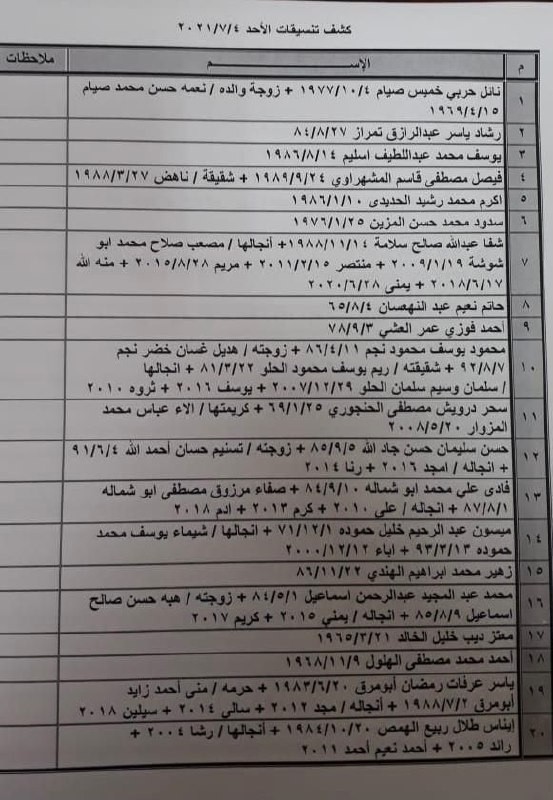 كشف تنسيقات الأحد ٢٠٢١/٧/٤
م الإســـــــــم ملاحظات
١ نائل حربي خميس صيام ١٩٧٧/١٠/٤ + زوجة والده / نعمه حسن محمد صيام
١٩٦٩/٤/١٥
٢ رشاد ياسر عبدالرازق تمراز ٨٤/٨/٢٧
٣ يوسف محمد عبداللطيف اسليم ١٩٨٦/٨/١٤
٤ فيصل مصطفى قاسم المشهراوي ١٩٨٩/٩/٢٤ + شقيقة / ناهض ١٩٨٨/٣/٢٧
٥ اكرم محمد رشيد الحديدى ١٩٨٦/١/١٠
٦ سدود محمد حسن المزين ١٩٧٦/١/٢٥
شفا عبدالله صالح سلامة ١٩٨٨/١١/١٤+ أنجالها / مصعب صلاح محمد ابو
٧ شوشة ٢٠٠٩/١/١٩ + منتصر ٢٠١١/٢/١٥ + مريم ٢٠١٥/٨/٢٨ + منه الله
٢٠١٨/٦/١٧ + يمنى ٢٠٢٠/٦/٢٨
٨ حاتم نعيم عبد النهعسان ٦٥/٨/٤
٩ أحمد فوزي عمر العشي ٧٨/٩/٣
محمود يوسف محمود نجم ٨٦/٤/١١ + زوجته / هديل غسان خضر نجم
١٠ ٩٢/٨/٧ + شقيقته / ريم يوسف محمود الحلو ٨١/٣/٢٢ + انجالها
/ سلمان وسيم سلمان الحلو ٢٠٠٧/١٢/٢٩ + يوسف ٢٠١٦ + ثروه ٢٠١٠
١١ سحر درويش مصطفى الحنجوري ٦٩/١/٢٥ + كريمتها / الاء عباس محمد
المزوار ٢٠٠٨/٥/٢٠
١٢ حسن سليمان حسن جاد الله ٨٥/٩/٥ + زوجته / تسنيم حسان أحمد الله ٩١/٦/٤
+ انجاله / امجد ٢٠١٦ + رنا ٢٠١٤
١٣ فادى علي محمد ابو شماله ٨٤/٩/١٠ + صفاء مرزوق مصطفى ابو شماله
٨٧/٨/١ + انجاله / علي ٢٠١٠ + كرم ٢٠١٣ + ادم ٢٠١٨
١٤ ميسون عبد الرحيم خليل حموده ٧١/١٢/١ + انجالها / شيماء يوسف محمد
حموده ٩٣/٣/١٣ + اباء ٢٠٠٠/١٢/١٢
١٥ زهير محمد ابراهيم الهندي ٨٦/١١/٢٢
١٦ محمد عبد المجيد عبدالرحمن اسماعيل ٨٤/٥/١ + زوجته / هبه حسن صالح
اسماعيل ٨٥/٨/٩ + انجاله / يمني ٢٠١٥ + كريم ٢٠١٧
١٧ معتز ديب خليل الخالد ١٩٦٥/٣/٢١
١٨ أحمد محمد مصطفى الهلول ١٩٦٨/١١/٩
١٩ ياسر عرفات رمضان أبومرق ١٩٨٣/٦/٢٠ + حرمه / منى أحمد زايد
أبومرق ١٩٨٨/٧/٢ + أنجاله / مجد ٢٠١٢ + سالي ٢٠١٤ + سيلين ٢٠١٨
٢٠ إيناس طلال ربيع الهمص ١٩٨٤/١٠/٢٠ + أنجالها / رشا ٢٠٠٤ +
رائد ٢٠٠٥ + أحمد نعيم أحمد ٢٠١١